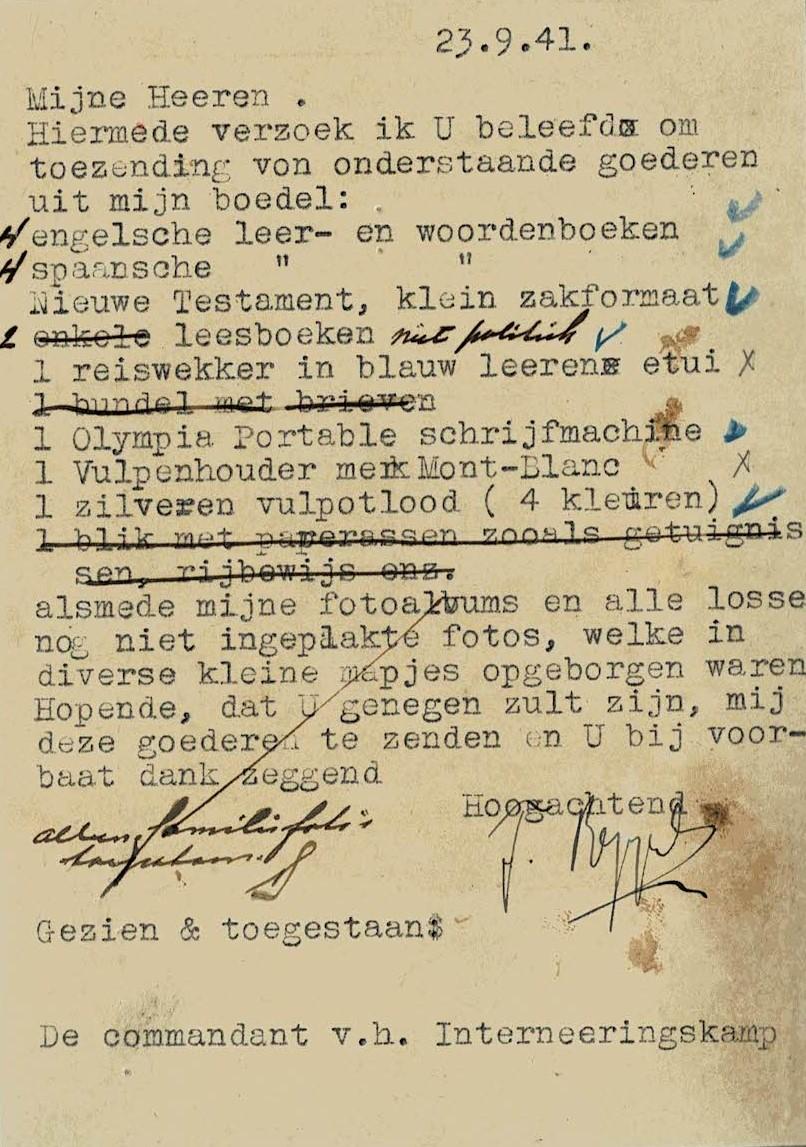 23.9.41.
Mijne Heeren .
Hiermede verzoek ik U beleefd om
toezending von onderstaande goederen
uit mijn boedel:
4 engelsche leer- en woordenboeken
4 spaansche " "
Nieuwe Testament, klein zakformaat
2 enkele leesboeken niet politiek
1 reiswekker in blauw leeren etui
1 bundel met brieven
1 Olympia Portable schrijfmachine
1 Vulpenhouder merk Mont-Blanc
1 zilveren vulpotlood ( 4 kleuren)
1 blik met paperassen zooals getuignis
sen, rijbewijs enz.
alsmede mijne fotoalbums en alle losse
nog niet ingeplakte fotos, welke in
diverse kleine mapjes opgeborgen waren
Hopende, dat U genegen zult zijn, mij
deze goederen te zenden en U bij voor-
baat dank zeggend
Hoogachtend
alleen familiefoto's
toegestaan.
J.
Gezien & toegestaan$
De commandant v.h. Interneeringskamp